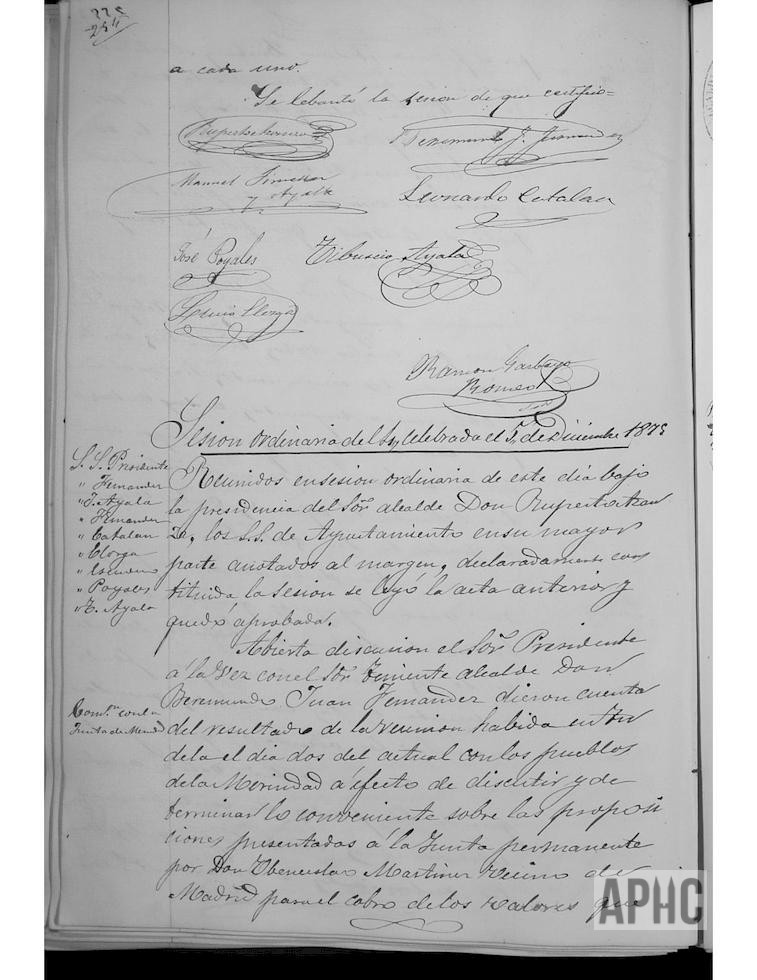 225
254
a cada uno.
Se lebantó la sesion de que certifico=
Ruperto
Beremundo J. Fernandez
Manuel Jimenez
y Ayala
Leonardo Catalan
José Poyales
Tiburcio Ayala
Ramon Garbayo
Romeo
Sesion ordinaria del celebrada el 5 de Diciembre 1875
S. S. Presidente
" Fernandez
" J. Ayala
" Fernandez
" Catalan
" Llorga
" Poyales
" T. Ayala
Reunidos en sesion ordinaria de este dia bajo
la presidencia del Sor. alcalde Don Ruperto
los S.S. de Ayuntamiento en su mayor
parte anotados al margen, declaradamente cons
tituida la sesion se leyó la acta anterior y
quedó aprobada.
Abierta discusion el Sor. Presidente
á la vez con el Sor. teniente alcalde Don
Beremundo Juan Fernandez dieron cuenta
Junta de Merind
del resultado de la reunion habida en Tu
dela el dia dos del actual con los pueblos
de la Merindad á efecto de discutir y de
terminar lo conveniente sobre las proposi
ciones presentadas á la Junta permanente
por Don Martinez vecino de
Madrid para el cobro de los valores que
APHC